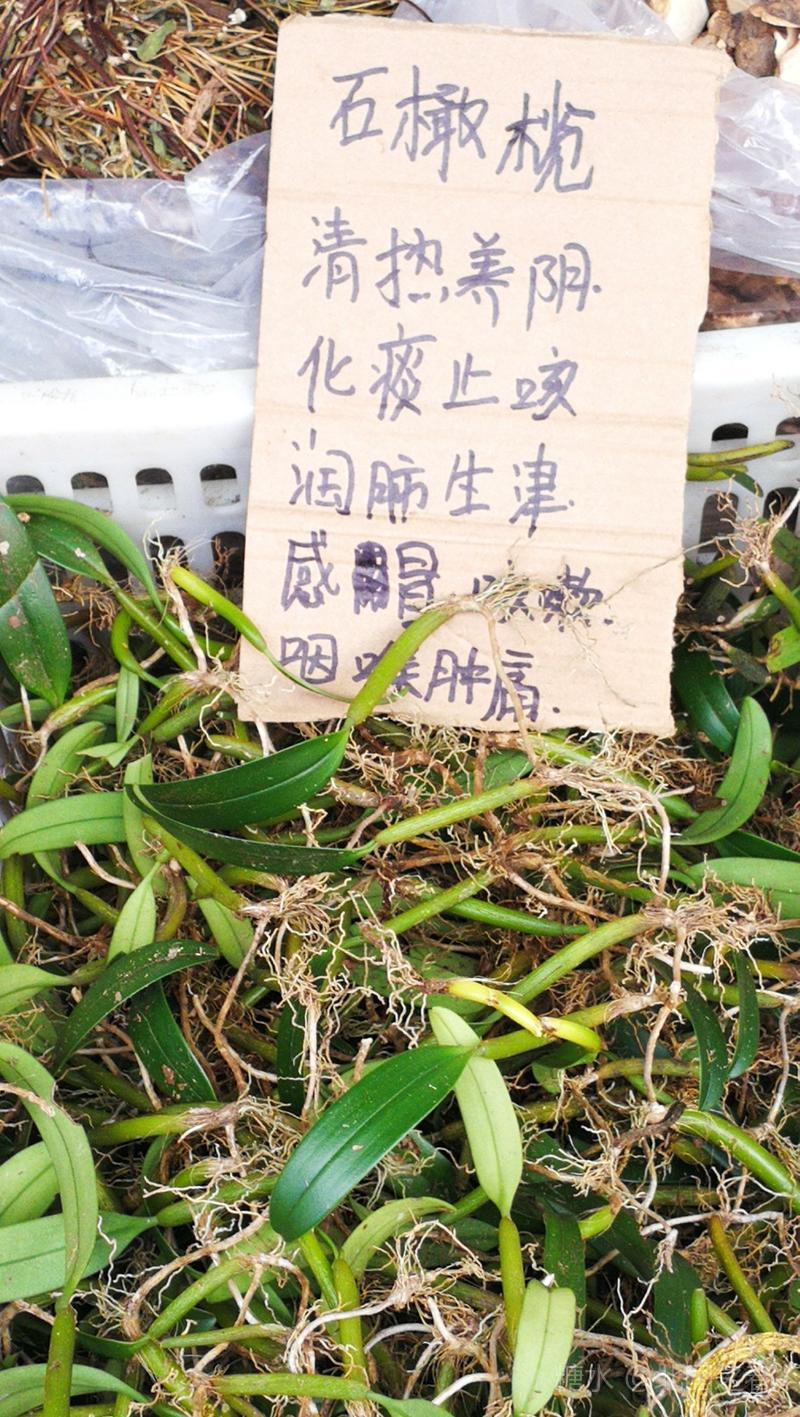 石橄榄
清热养阴.
化痰止咳
润肺生津.
感冒 咳嗽.
咽喉肿痛.
糖水